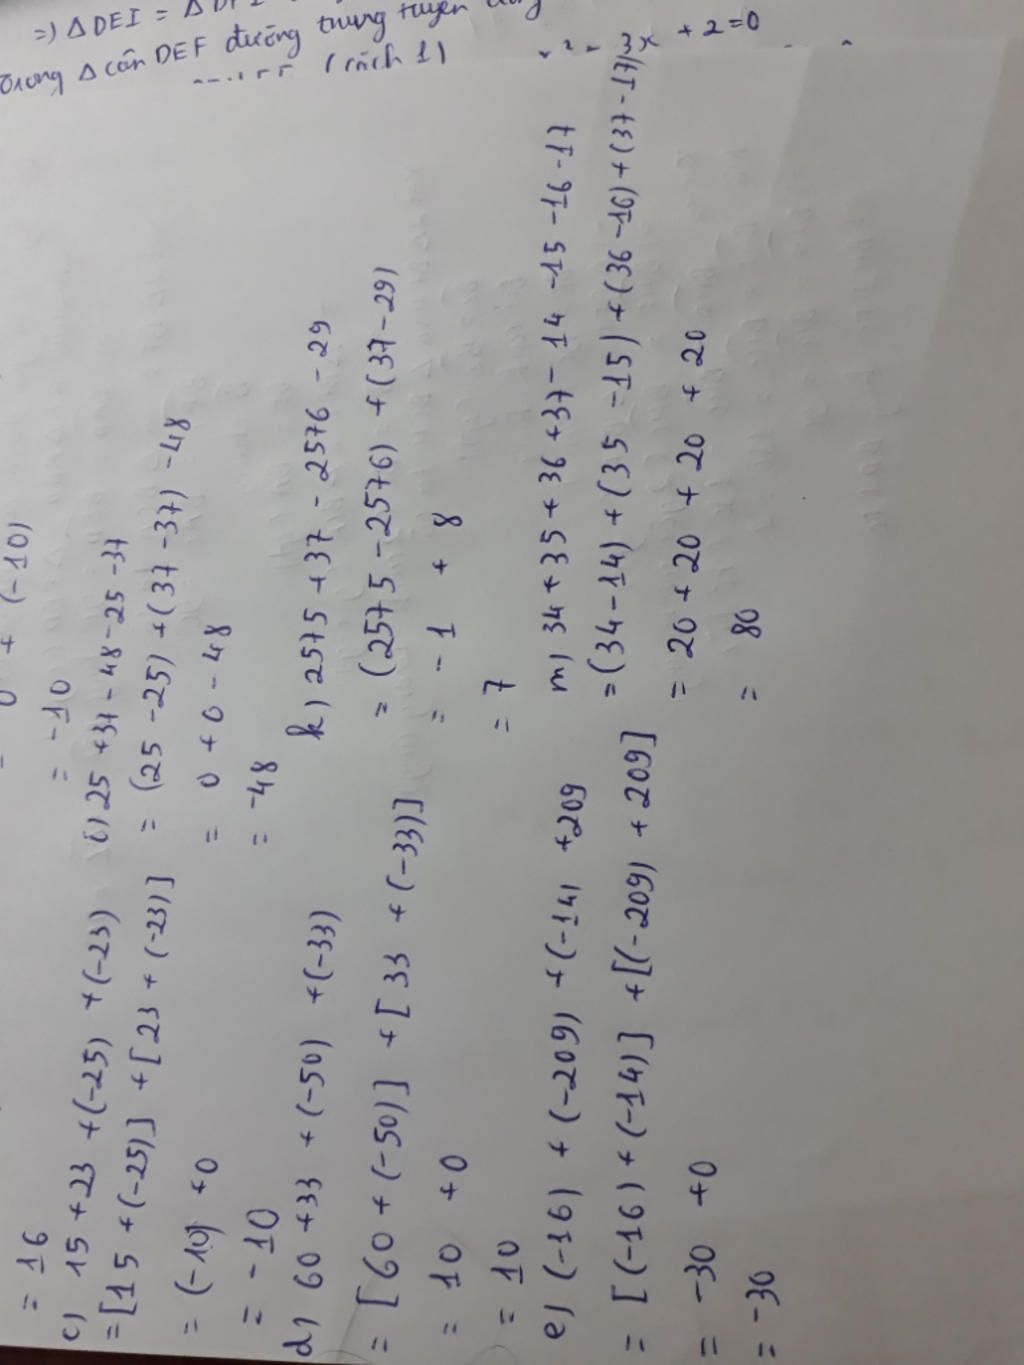 =) Δ DEI = Δ
Trong Δ cân DEF đường trung tuyến
(cách 1)
+ 2 = 0
= 16
c) 15 + 23 + (-25) + (-23)
= [15 + (-25)] + [23 + (-23)]
= (-10) + 0
= -10
d) 60 + 33 + (-50) + (-33)
= [60 + (-50)] + [33 + (-33)]
= 10 + 0
= 10
e) (-16) + (-209) + (-14) + 209
= [(-16) + (-14)] + [(-209) + 209]
= -30 + 0
= -30
+ (-10)
= -10
i) 25 + 37 - 48 - 25 - 37
= (25 - 25) + (37 - 37) - 48
= 0 + 0 - 48
= -48
k) 2575 + 37 - 2576 - 29
= (2575 - 2576) + (37 - 29)
= - 1 + 8
= 7
m) 34 + 35 + 36 + 37 - 14 - 15 - 16 - 17
= (34 - 14) + (35 - 15) + (36 - 16) + (37 - 17)
= 20 + 20 + 20 + 20
= 80